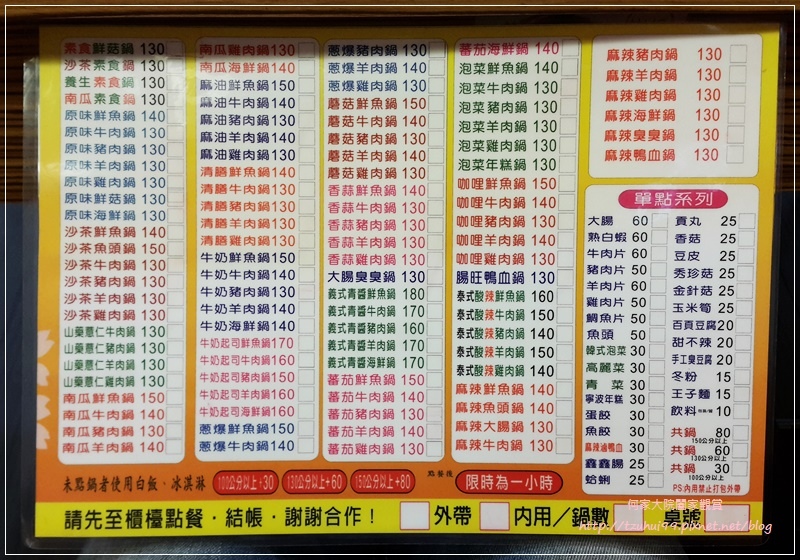 素食鮮菇鍋 130
沙茶素食鍋 130
養生素食鍋 130
南瓜素食鍋 130
原味鮮魚鍋 140
原味牛肉鍋 130
原味豬肉鍋 130
原味羊肉鍋 130
原味雞肉鍋 130
原味鮮菇鍋 130
原味海鮮鍋 130
沙茶鮮魚鍋 140
沙茶魚頭鍋 150
沙茶牛肉鍋 130
沙茶豬肉鍋 130
沙茶羊肉鍋 130
沙茶雞肉鍋 130
山藥薏仁牛肉鍋 130
山藥薏仁豬肉鍋 130
山藥薏仁羊肉鍋 130
山藥薏仁雞肉鍋 130
南瓜鮮魚鍋 150
南瓜牛肉鍋 140
南瓜豬肉鍋 130
南瓜羊肉鍋 140
南瓜雞肉鍋 130
南瓜海鮮鍋 140
麻油鮮魚鍋 150
麻油牛肉鍋 140
麻油豬肉鍋 130
麻油羊肉鍋 140
麻油雞肉鍋 130
清膳鮮魚鍋 140
清膳牛肉鍋 130
清膳豬肉鍋 130
清膳羊肉鍋 130
清膳雞肉鍋 130
牛奶鮮魚鍋 150
牛奶牛肉鍋 140
牛奶豬肉鍋 130
牛奶羊肉鍋 140
牛奶海鮮鍋 140
牛奶起司鮮魚鍋 170
牛奶起司牛肉鍋 160
牛奶起司豬肉鍋 150
牛奶起司羊肉鍋 160
牛奶起司海鮮鍋 160
蔥爆鮮魚鍋 150
蔥爆牛肉鍋 140
蔥爆豬肉鍋 130
蔥爆羊肉鍋 140
蔥爆雞肉鍋 130
蘑菇鮮魚鍋 150
蘑菇牛肉鍋 140
蘑菇豬肉鍋 130
蘑菇羊肉鍋 140
蘑菇雞肉鍋 130
香蒜鮮魚鍋 140
香蒜牛肉鍋 130
香蒜豬肉鍋 130
香蒜羊肉鍋 130
香蒜雞肉鍋 130
大腸臭臭鍋 130
義式青醬鮮魚鍋 180
義式青醬牛肉鍋 170
義式青醬豬肉鍋 160
義式青醬羊肉鍋 170
義式青醬海鮮鍋 170
蕃茄鮮魚鍋 150
蕃茄牛肉鍋 140
蕃茄豬肉鍋 130
蕃茄羊肉鍋 140
蕃茄雞肉鍋 130
蕃茄海鮮鍋 140
泡菜鮮魚鍋 140
泡菜牛肉鍋 130
泡菜豬肉鍋 130
泡菜羊肉鍋 130
泡菜雞肉鍋 130
泡菜年糕鍋 130
咖哩鮮魚鍋 150
咖哩牛肉鍋 140
咖哩豬肉鍋 130
咖哩羊肉鍋 140
咖哩雞肉鍋 130
腸旺鴨血鍋 130
泰式酸辣鮮魚鍋 160
泰式酸辣牛肉鍋 150
泰式酸辣豬肉鍋 140
泰式酸辣羊肉鍋 150
泰式酸辣雞肉鍋 140
麻辣鮮魚鍋 140
麻辣魚頭鍋 150
麻辣大腸鍋 130
麻辣牛肉鍋 130
麻辣豬肉鍋 130
麻辣羊肉鍋 130
麻辣雞肉鍋 130
麻辣海鮮鍋 130
麻辣臭臭鍋 130
麻辣鴨血鍋 130
單點系列
大腸 60
熟白蝦 60
牛肉片 60
豬肉片 50
羊肉片 60
雞肉片 50
鯛魚片 50
魚頭 50
韓式泡菜 30
高麗菜 30
青菜 30
寧波年糕 30
蛋餃 30
魚餃 30
麻辣滷鴨血 30
鑫鑫腸 25
蛤蜊 25
貢丸 25
香菇 25
豆皮 25
秀珍菇 25
金針菇 25
玉米筍 25
百頁豆腐 20
甜不辣 20
手工臭豆腐 20
冬粉 15
王子麵 15
飲料 10
共鍋 80
150公分以上
共鍋 60
130公分以上
共鍋 30
100公分以上
PS:內用禁止打包外帶
未點鍋者使用白飯‧冰淇淋 100公分以上+30 130公分以上+60 150公分以上+80 點餐後 限時為一小時
請先至櫃檯點餐‧結帳‧謝謝合作! 外帶 內用/鍋數 桌號
何家大院闔家觀賞
http://tzuhui99.pixnet.net/blog